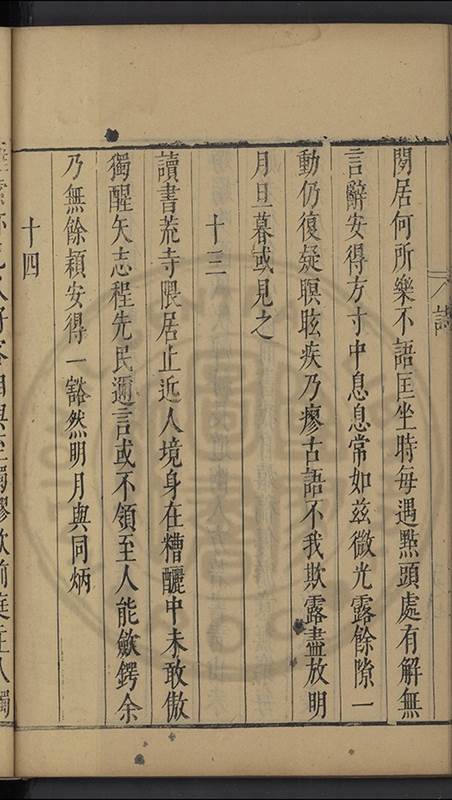 詩
閒居何所樂不語匡坐時每遇點頭處有解無
言辭安得方寸中息息常如茲微光露餘隙一
動仍復疑瞑眩疾乃瘳古語不我欺露盡放明
月旦暮或見之
十三
讀書荒寺隈居止近人境身在糟醨中未敢傲
獨醒矢志程先民邇言或不領至人能斂鍔余
乃無餘穎安得一豁然明月與同炳
十四